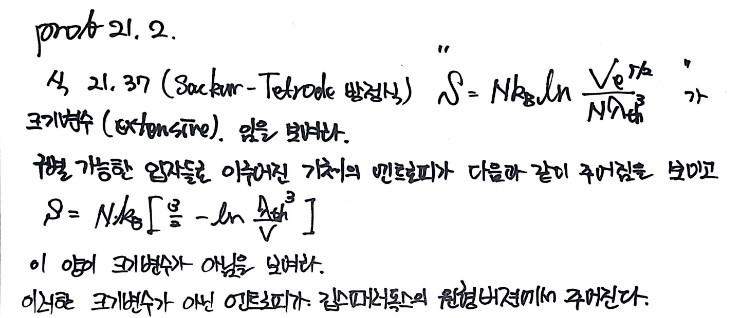 prob 21.2.
식 21.37 (Sackur-Tetrode 방정식) " S = Nk_B ln \frac{Ve^{5/2}}{Nλ_{th}^3} " 가
크기변수 (extensive). 임을 보여라.
구별 가능한 입자들로 이루어진 기체의 엔트로피가 다음과 같이 주어짐을 보이고
S = Nk_B [ \frac{3}{2} - ln \frac{λ_{th}^3}{V} ]
이 양이 크기변수가 아님을 보여라.
이러한 크기변수가 아닌 엔트로피가 깁스패러독스의 원형버젼에서 주어진다.